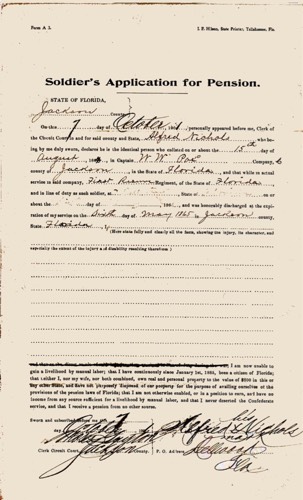 Form A 1.
I. B. Hilson, State Printer, Tallahassee, Fla.
Soldier's Application for Pension.
STATE OF FLORIDA,
Jackson County.
On this 7 day of October personally appeared before me, Clerk of the
Circuit Court in and for said county and State, Alfred Nichols who be-
ing by me duly sworn, declares he is the identical person who enlisted on or about the 15th day of
August 186 in Captain W. W. Poe Company,
of Jackson in the State of Florida, and that while in actual
service in said company, First Reserve Regiment, of the State of Florida
and in line of duty as such soldier, at
about the day of 186 , and was honorably discharged at the expir-
ation of my service on the Sixth day of May 1865 in Jackson county,
State Florida
(Here state fully and clearly all the facts, showing the injury, its character, and
especially the extent of the injury and disability resulting therefrom.)
I am now unable to gain
a livelihood by manual labor; that I have continuously since January 1st, been a citizen of Florida;
that neither I, nor my wife, nor both combined, own real and personal property to the value of in this or
any other State, and have not purposely disposed of our property for the purpose of availing ourselves of the
provisions of the pension laws of Florida; that I am not otherwise enabled, or in a position to earn, and have no
income from any source sufficient for a livelihood by manual labor, and that I never deserted the Confederate
service, and that I receive a pension from no other source.
Sworn and subscribed before me 7
his
Alfred X Nichols
mark
Clerk Circuit Court, Jackson County. P. O. Address
Fla